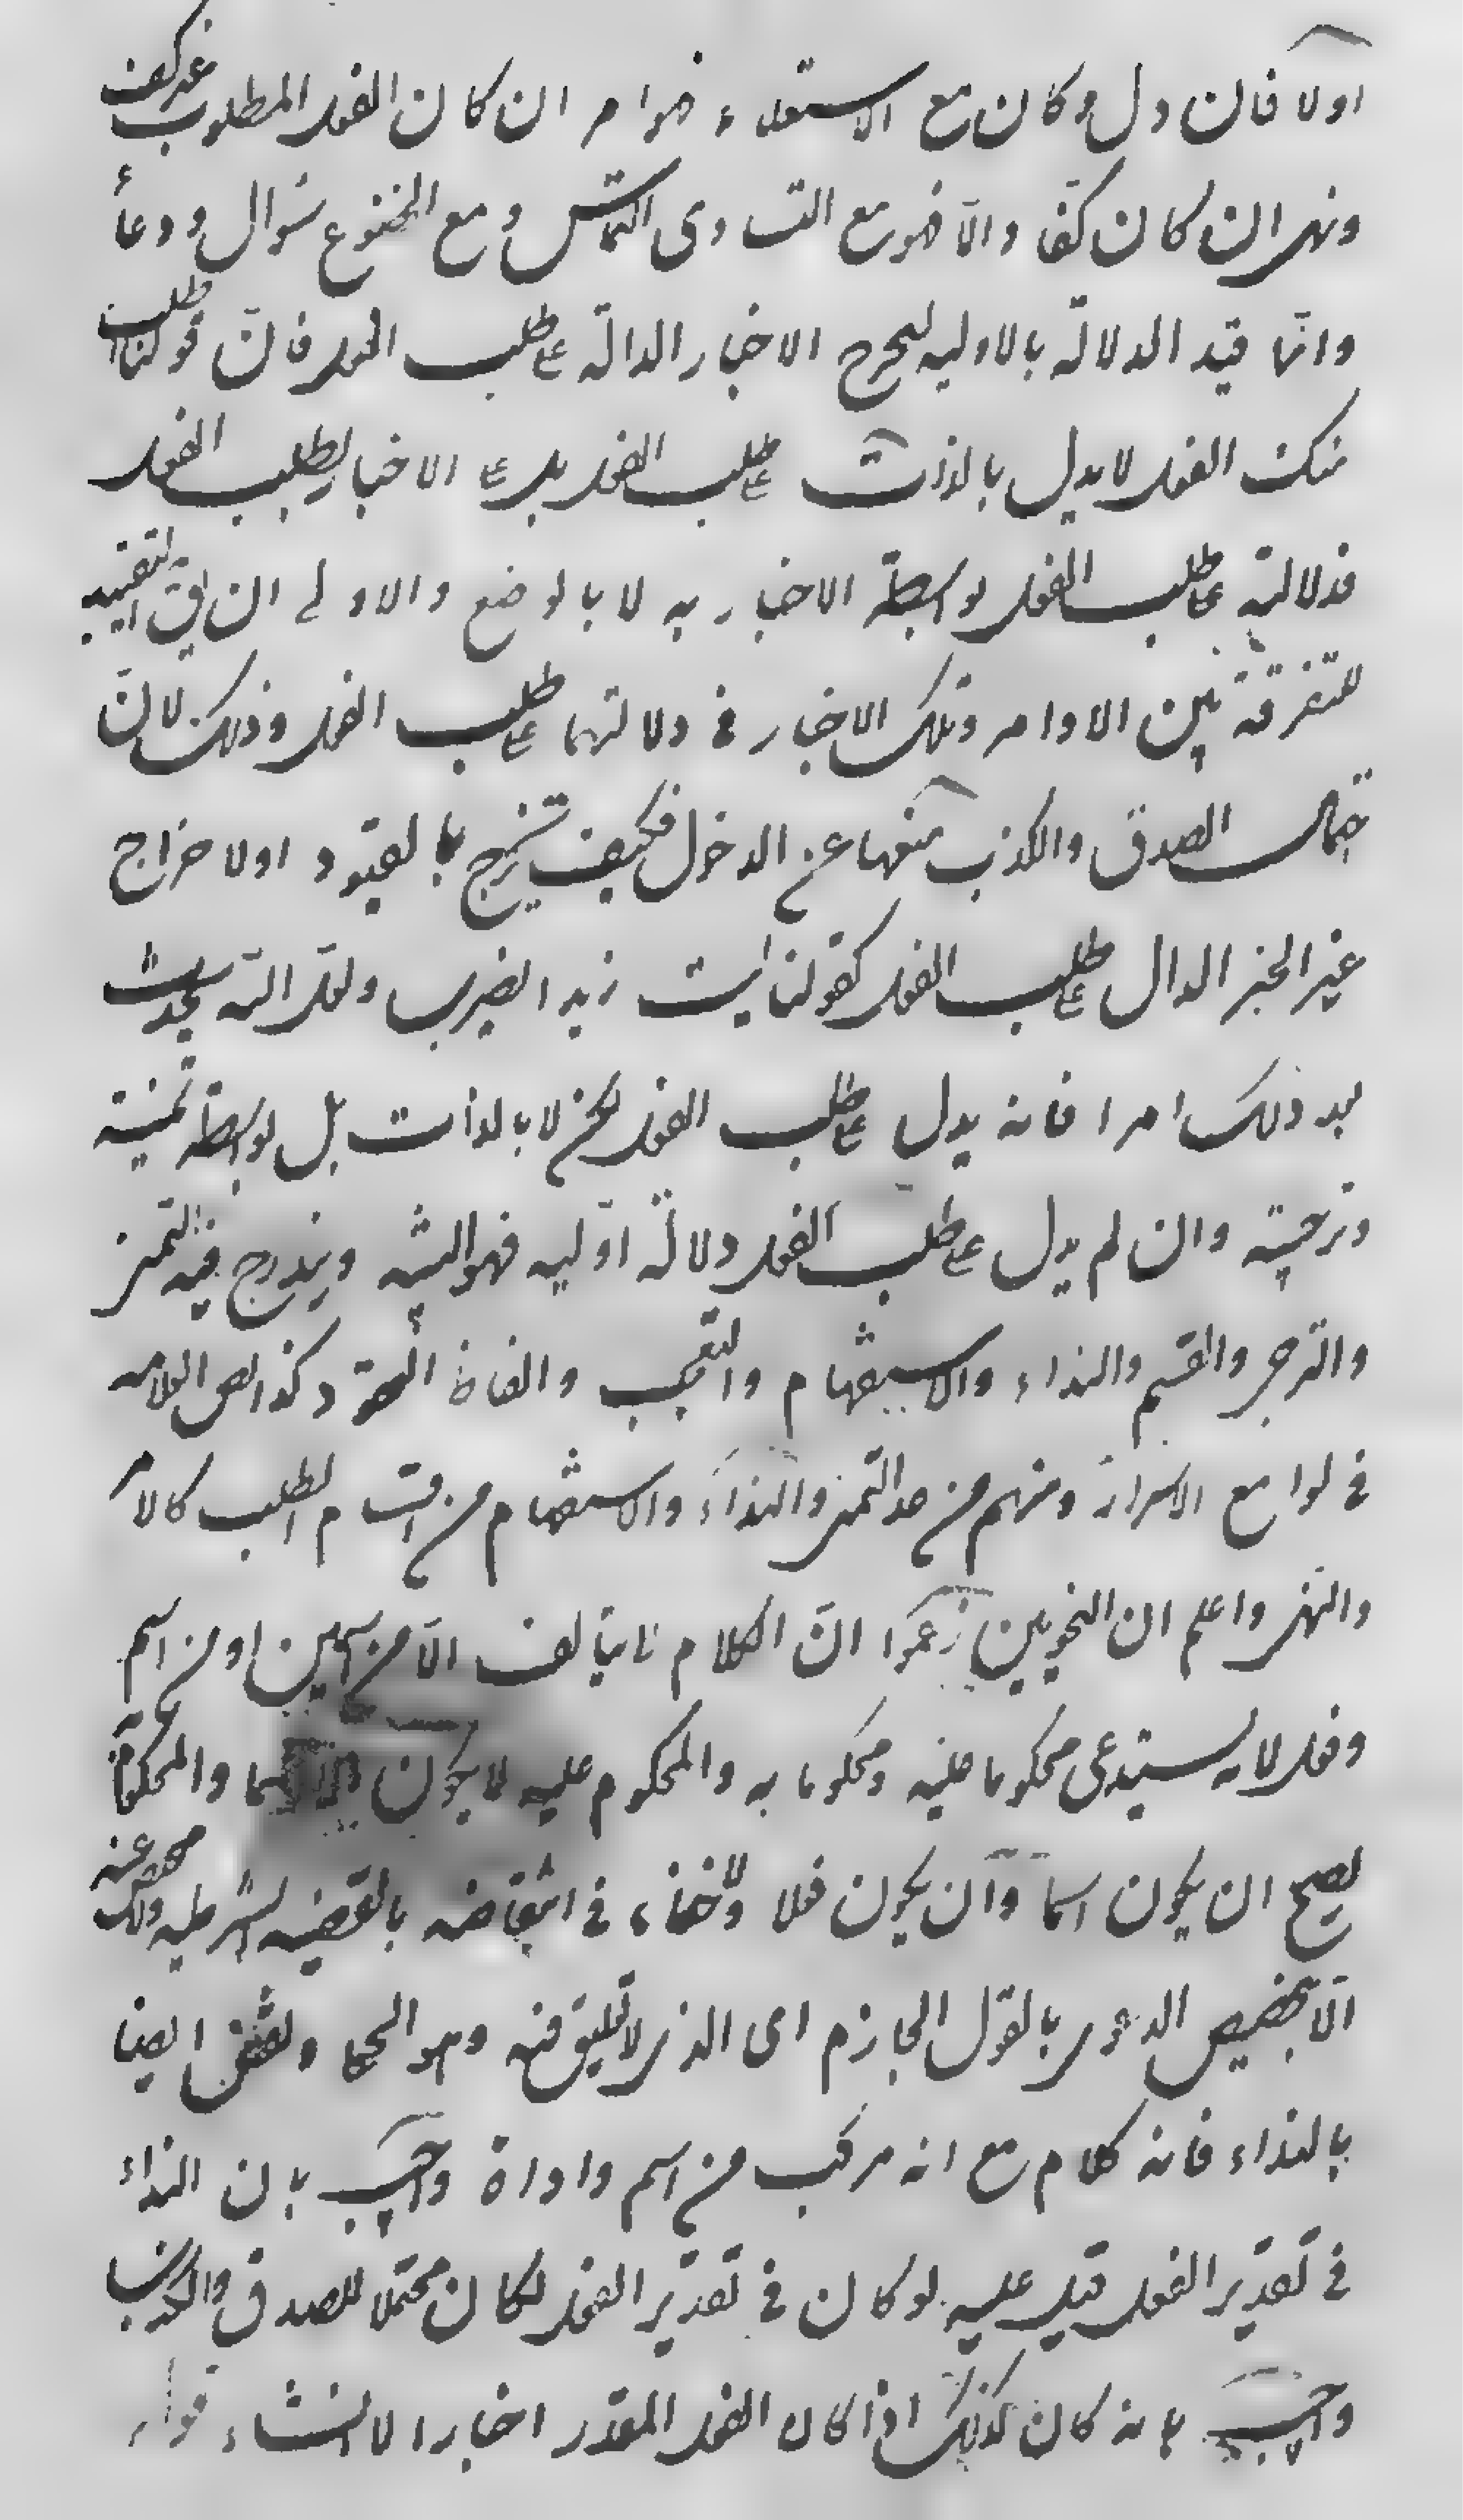 اولا فان دل وكان مع الاستعلاء فهو امر ان كان الفعل المطلوب غير كف
ونهى ان كان كفّا والّا فهو مع التساوى التماس ومع الخضوع سؤال ودعاء
وانّما قيد الدلالة بالاوليه ليخرج الاخبار الدالة على طلب الفعل فانّ قولنا طلب
منك الفعل لا يدل بالذات على طلب الفعل بل على الاخبار بطلب الفعل
فدلالته على طلب الفعل بواسطة الاخبار به لا بالوضع والاولى ان يق التقييد
للتفرقة بين الاوامر وتلك الاخبار فى دلالتهما على طلب الفعل وذلك لانّ
احتمال الصدق والكذب منعها عن الدخول فكيف تخرج بالقيود او لاخراج
غير الخبر الدال على طلب الفعل كقولنا ليت زيدا يضرب ولعل الله يحدث
بعد ذلك امرا فانه يدل على طلب الفعل لكن لا بالذات بل بواسطة تمنيه
وترجيه وان لم يدل على طلب الفعل دلالة اوّليه فهو التنبيه ويندرج فيه التمنى
والترجى والقسم والنداء والاستفهام والتعجب والفاظ العقود كذا نص العلامه
فى لوامع الاسرار ومنهم من عد التمنى والنداء والاستفهام من اقسام الطلب كالامر
والنهى واعلم ان النحويين زعموا انّ الكلام لا يتألف الّا من اسمين او من اسم
وفعل لانه يستدعى محكوما عليه ومحكوما به والمحكوم عليه لا يكون الا اسما والمحكوم به
يصح ان يكون اسما وان يكون فعلا ولا خفاء فى انتقاضه بالقضيه الشرطيه ولا محيص عنه
الّا بتخصيص الدعوى بالقول الجازم اى الذى لا تعليق فيه وهو الحملى ونقض ايضا
بالنداء فانه كلام مع انه مركب من اسم واداة واجيب بان النداء
فى تقدير الفعل قيل عليه لو كان فى تقدير الفعل لكان محتملا للصدق والكذب
واجيب بانه كان كذلك اذا كان الفعل المقدر اخبارا لا انشاء قوله